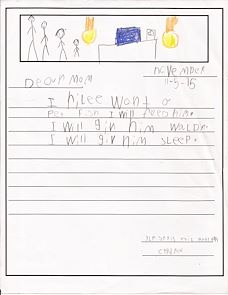 November
11-5-15
Dear mom
I hlee wont a
Pet Fish I will feed him.
I will giv him Water.
I will giv him sleep.